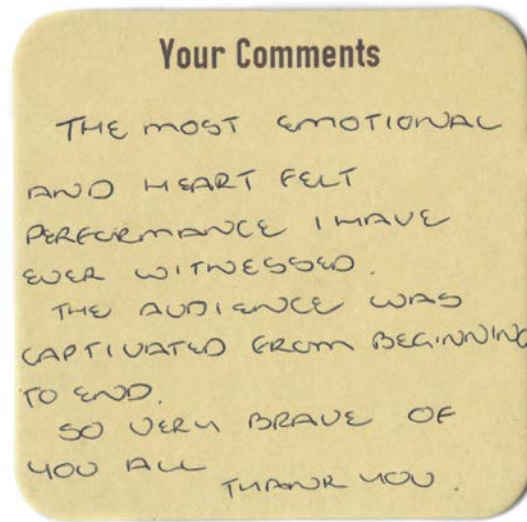 Your Comments
THE MOST EMOTIONAL
AND HEART FELT
PERFORMANCE I HAVE
EVER WITNESSED.
THE AUDIENCE WAS
CAPTIVATED FROM BEGINNING
TO END.
SO VERY BRAVE OF
YOU ALL
THANK YOU.